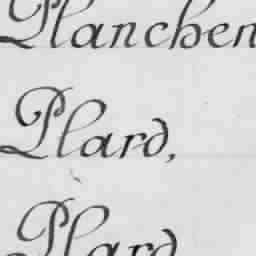 Planchen
Plard,
Plard